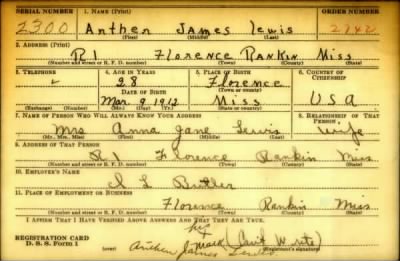 SERIAL NUMBER 1. NAME (Print) ORDER NUMBER
2300 Anther James Lewis 2742
(First) (Middle) (Last)
2. ADDRESS (Print)
R1 Florence Rankin Miss
(Number and street or R. F. D. number) (Town) (County) (State)
3. TELEPHONE 4. AGE IN YEARS 5. PLACE OF BIRTH 6. COUNTRY OF CITIZENSHIP
28 Florence
DATE OF BIRTH (Town or county)
Mar. 9 1912 Miss USA
(Exchange) (Number) (Mo.) (Day) (Yr.) (State or country)
7. NAME OF PERSON WHO WILL ALWAYS KNOW YOUR ADDRESS 8. RELATIONSHIP OF THAT PERSON
Mrs Anna Jane Lewis Wife
(Mr., Mrs., Miss) (First) (Middle) (Last)
9. ADDRESS OF THAT PERSON
R Florence Rankin Miss.
(Number and street or R. F. D. number) (Town) (County) (State)
10. EMPLOYER'S NAME
Butler
11. PLACE OF EMPLOYMENT OR BUSINESS
Florence Rankin Miss.
(Number and street or R. F. D. number) (Town) (County) (State)
I AFFIRM THAT I HAVE VERIFIED ABOVE ANSWERS AND THAT THEY ARE TRUE.
REGISTRATION CARD his
D. S. S. Form 1 mark (Can't Write)
Anther James Lewis (Registrant's signature)